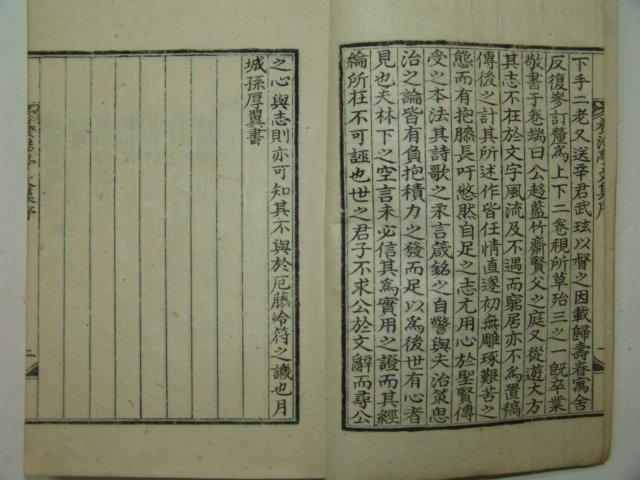 下手二老又送辛君武玹以督之因載歸壽春寓舍
反復參訂釐爲上下二卷視所草殆三之一旣卒業
敬書于卷端曰公趍藍竹齋賢父之庭又從遊大方
其志不在於文字風流及不遇而窮居亦不爲置稿
傳後之計其所述作皆任情直遂初無雕琢艱苦之
態而有抱膝長吁悠然自足之志尤用心於聖賢傳
受之本法其詩歌之永言箴銘之自警與夫治策思
治之論皆有負抱積力之發而足以爲後世有心者
見也夫林下之空言未必信其爲實用之證而其經
綸所在不可誣也世之君子不求公於文辭而尋公
之心與志則亦可知其不與於厄藤冷符之譏也月
城孫厚翼書